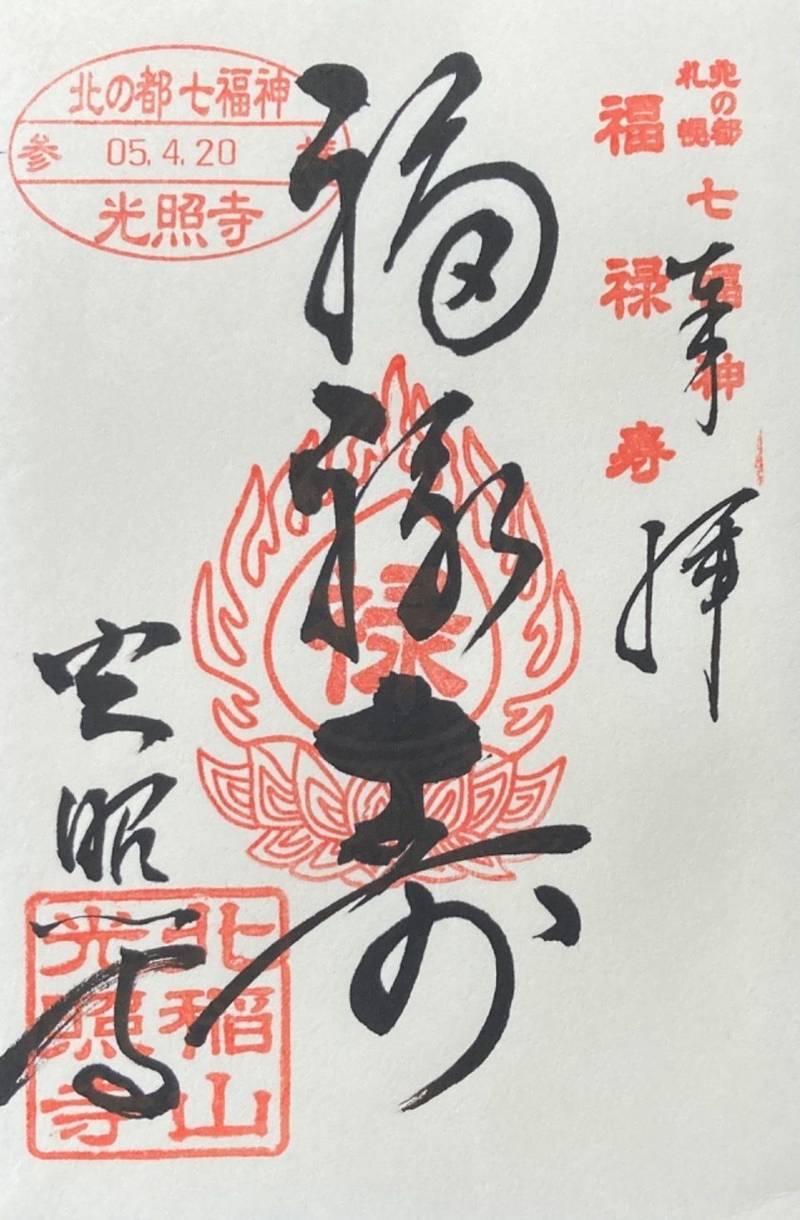 札幌
北の都
七福神
福禄寿
奉拝
福禄寿
禄
北の都七福神
参拝
05.4.20
光照寺
光照寺
北稲山
光照寺